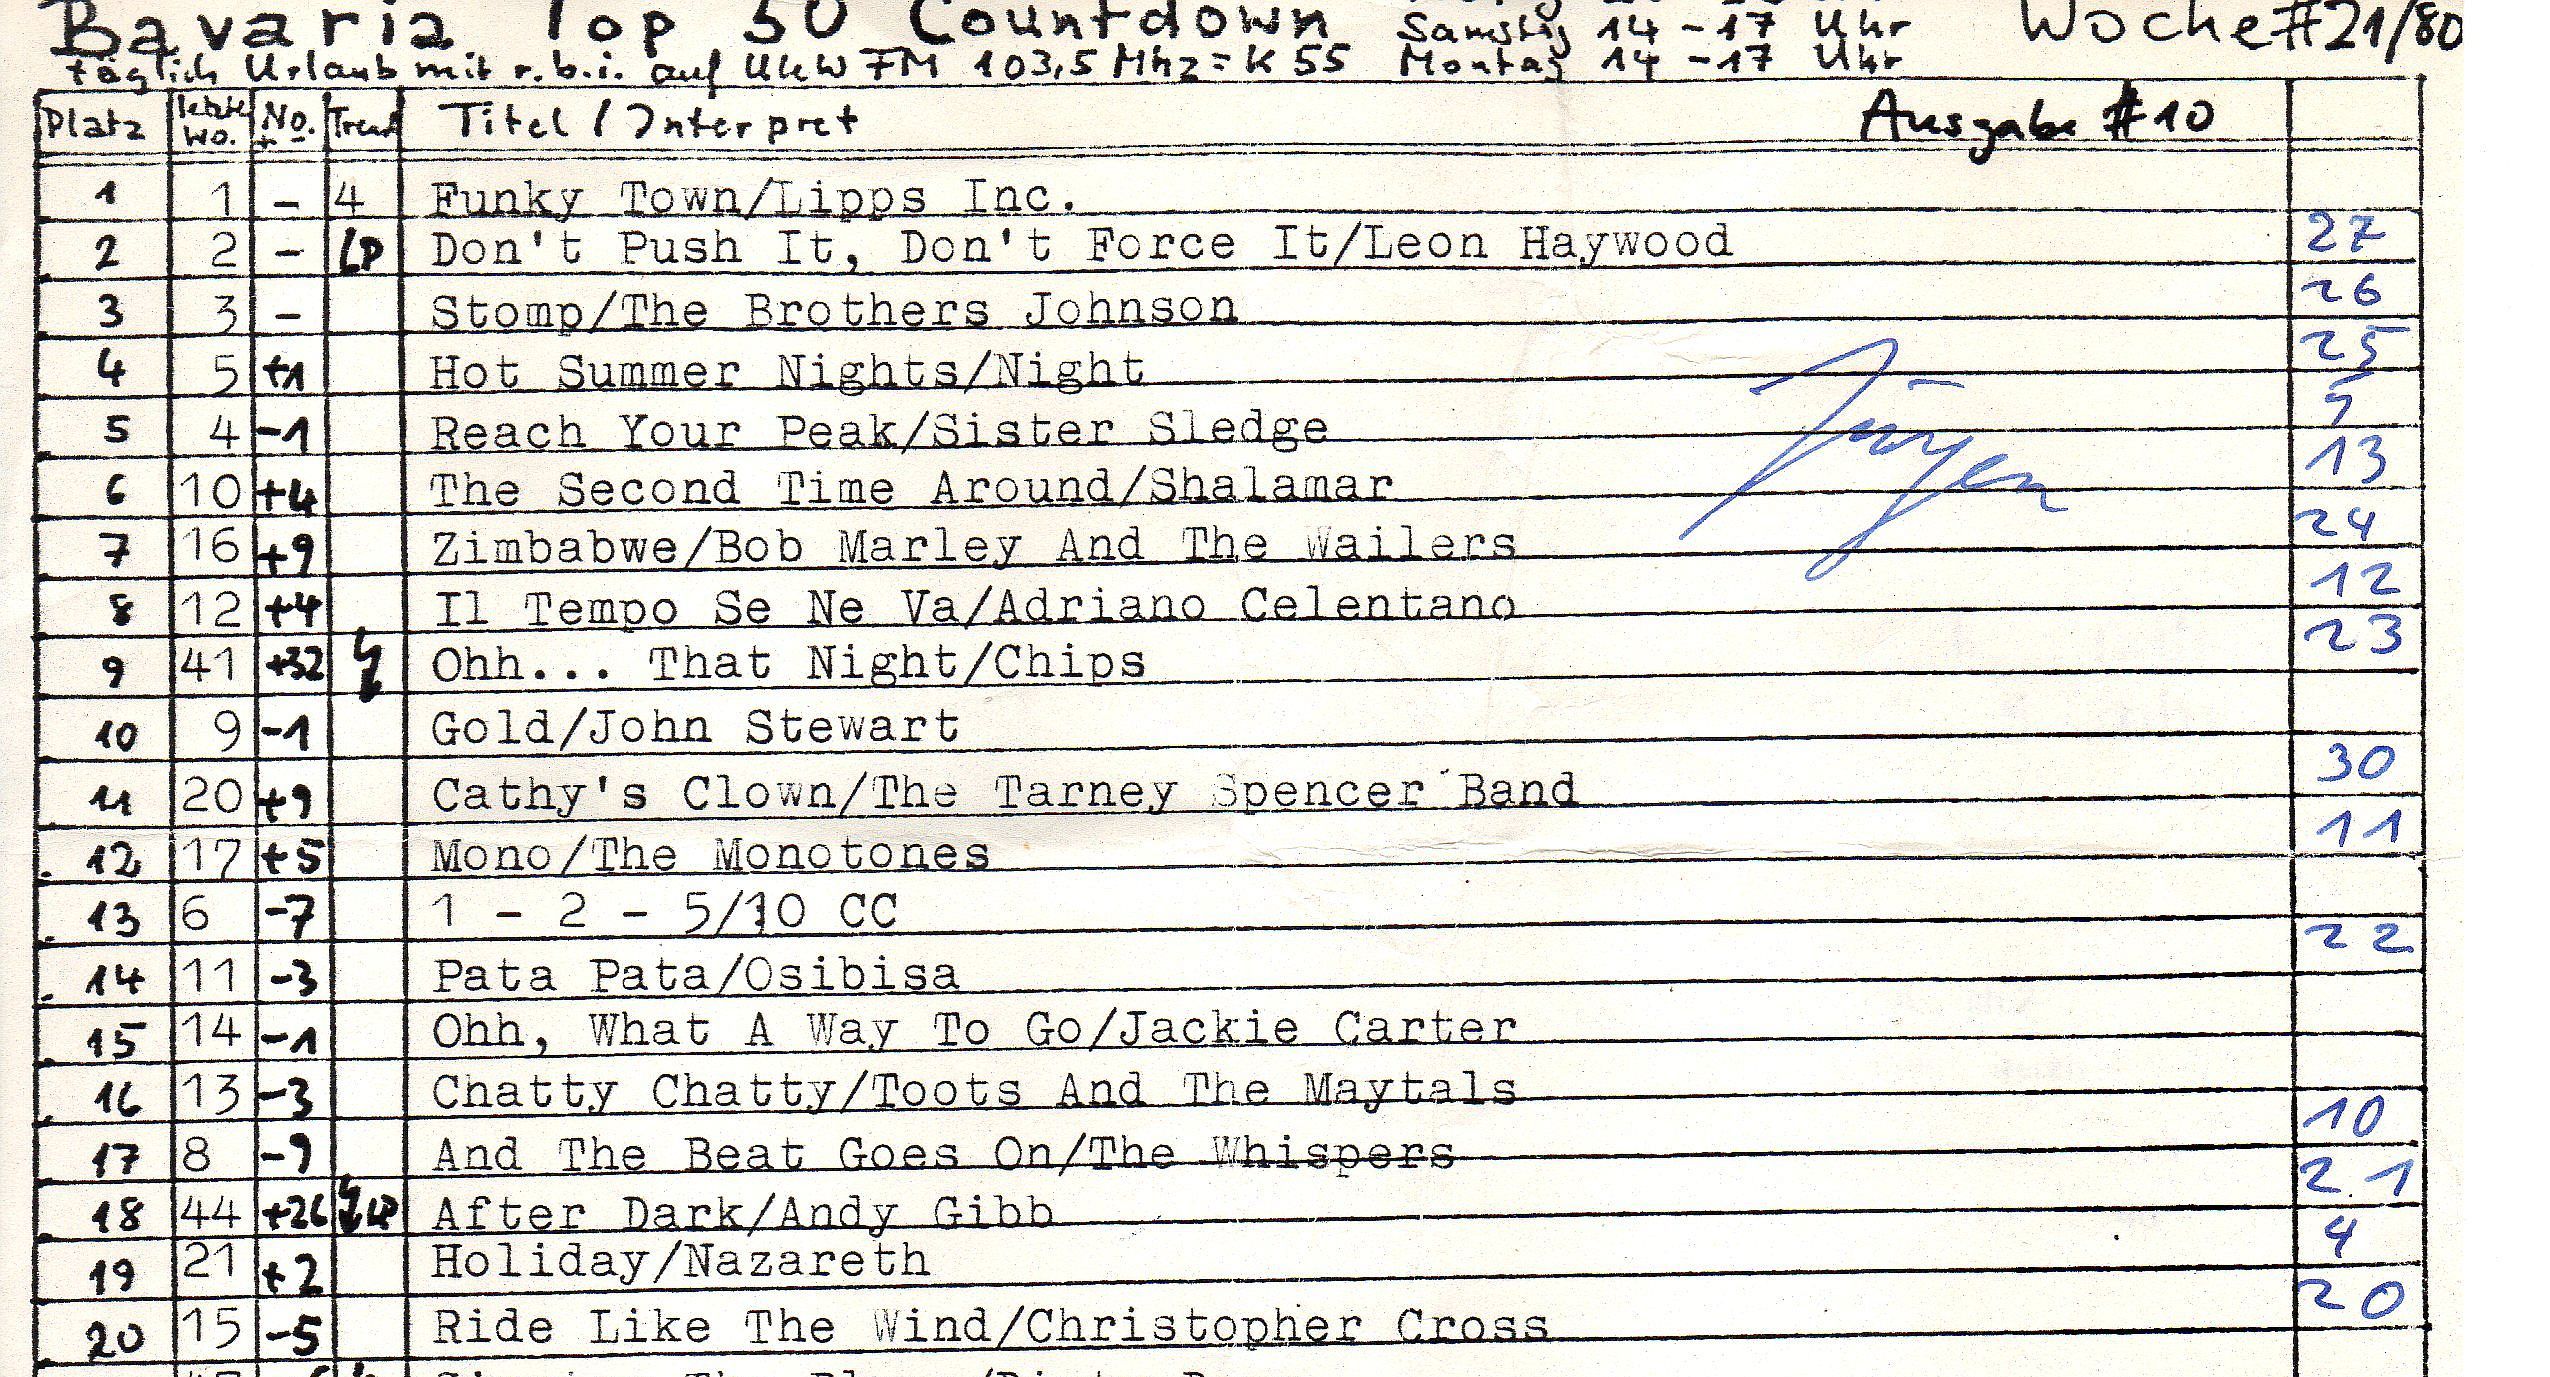 Bavaria Top 50 Countdown Samstag 14 - 17 Uhr Woche #21/80
täglich Urlaub mit r.b.i. auf UKW FM 103,5 Mhz = K 55 Montag 14 - 17 Uhr
Platz letzte Wo. No. + - Trend Titel / Interpret Ausgabe #10
1 1 - 4 Funky Town/Lipps Inc.
2 2 - LP Don't Push It, Don't Force It/Leon Haywood 27
3 3 - Stomp/The Brothers Johnson 26
4 5 +1 Hot Summer Nights/Night 25
5 4 -1 Reach Your Peak/Sister Sledge 5
Jürgen
6 10 +4 The Second Time Around/Shalamar 13
7 16 +9 Zimbabwe/Bob Marley And The Wailers 24
8 12 +4 Il Tempo Se Ne Va/Adriano Celentano 12
9 41 +32 Ohh... That Night/Chips 23
10 9 -1 Gold/John Stewart
11 20 +9 Cathy's Clown/The Tarney Spencer Band 30
12 17 +5 Mono/The Monotones 11
13 6 -7 1 - 2 - 5/10 CC
14 11 -3 Pata Pata/Osibisa 22
15 14 -1 Ohh, What A Way To Go/Jackie Carter
16 13 -3 Chatty Chatty/Toots And The Maytals
17 8 -9 And The Beat Goes On/The Whispers 10
18 44 +26 LP After Dark/Andy Gibb 21
19 21 +2 Holiday/Nazareth 4
20 15 -5 Ride Like The Wind/Christopher Cross 20